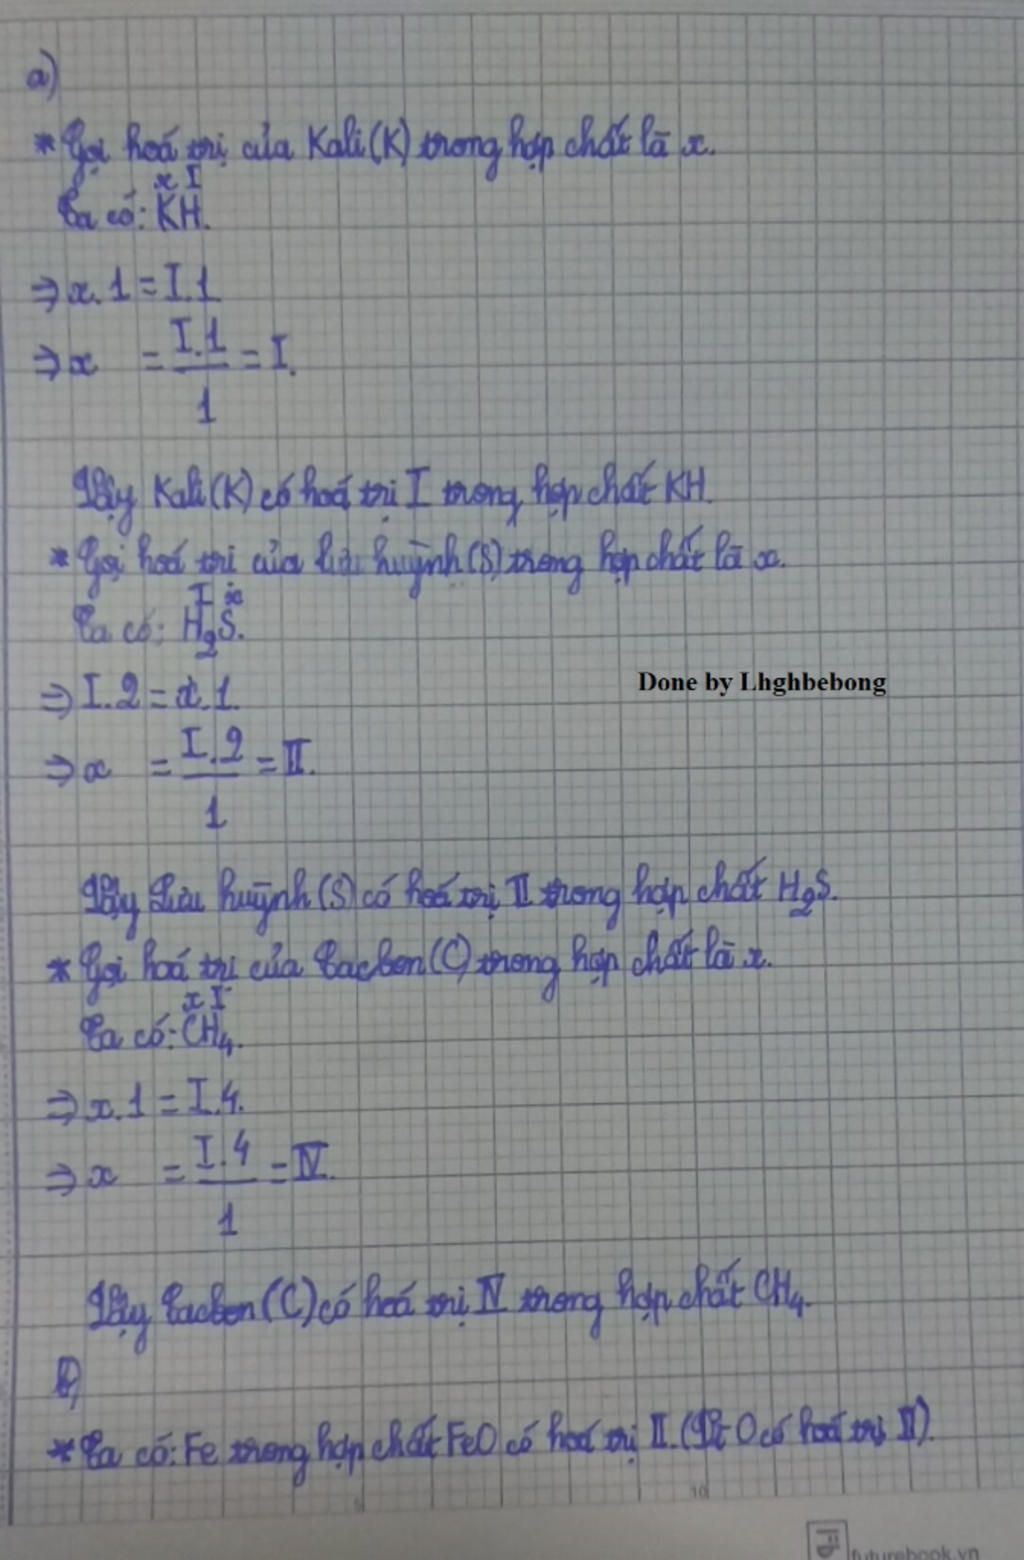 a)
* Gọi hoá trị của Kali (K) trong hợp chất là x.
x I
Ta có: KH.
⇒ x.1 = I.1
⇒ x = I.1/1 = I.
Vậy Kali (K) có hoá trị I trong hợp chất KH.
* Gọi hoá trị của lưu huỳnh (S) trong hợp chất là x.
I x
Ta có: H₂S.
⇒ I.2 = x.1.
⇒ x = I.2/1 = II.
Vậy Lưu huỳnh (S) có hoá trị II trong hợp chất H₂S.
* Gọi hoá trị của Cacbon (C) trong hợp chất là x.
x I
Ta có: CH₄.
⇒ x.1 = I.4.
⇒ x = I.4/1 = IV.
Vậy Cacbon (C) có hoá trị IV trong hợp chất CH₄.
b)
* Ta có: Fe trong hợp chất FeO có hoá trị II. (Vì O có hoá trị II).
Done by Lhghbebong
10
futurebook.vn